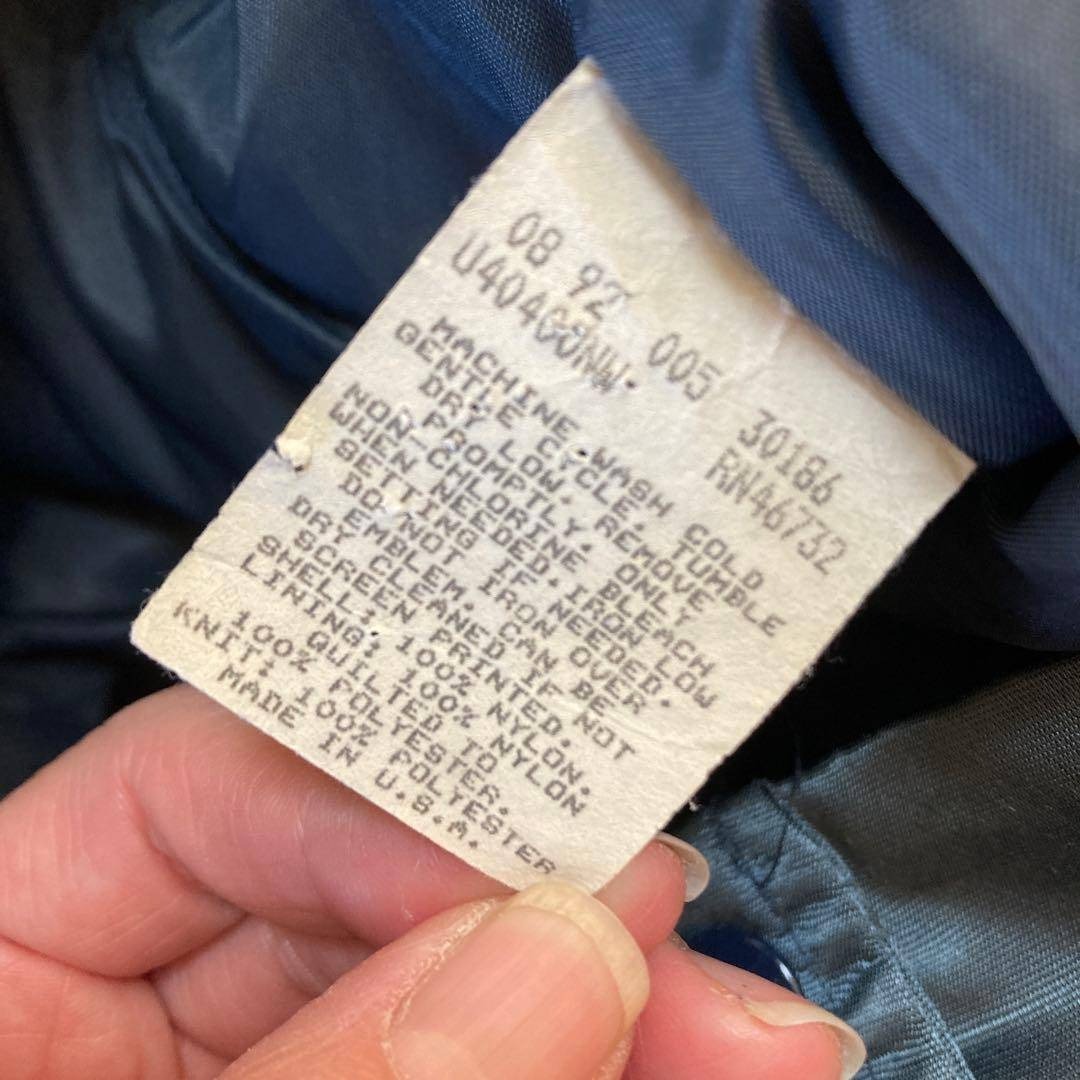 08 92 005 30186
U404G0NW RN46732
MACHINE WASH COLD
GENTLE CYCLE. TUMBLE
DRY LOW. REMOVE
PROMPTLY. ONLY
NON-CHLORINE BLEACH
WHEN NEEDED. IRON LOW
SETTING IF NEEDED.
DO NOT IRON OVER
EMBLEM. CAN BE
DRY CLEANED IF
SCREEN PRINTED. NOT
SHELL: 100% NYLON.
LINING: 100% NYLON
QUILTED TO
100% POLYESTER.
KNIT: 100% POLYESTER
MADE IN U.S.A.